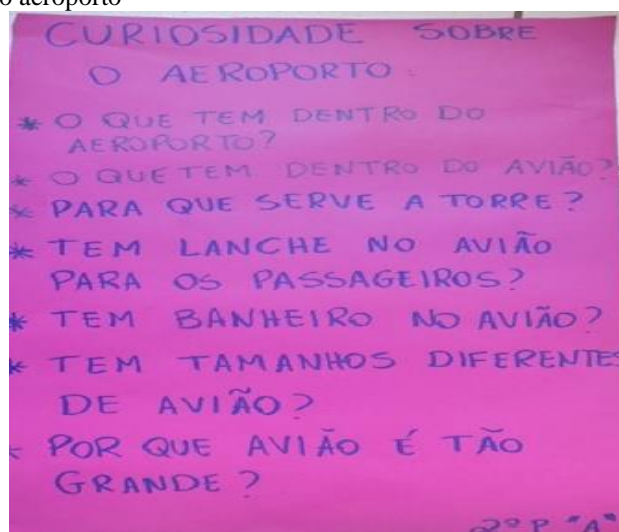 o aeroporto
CURIOSIDADE SOBRE
O AEROPORTO.
* O QUE TEM DENTRO DO
AEROPORTO?
* O QUE TEM DENTRO DO AVIÃO?
* PARA QUE SERVE A TORRE?
* TEM LANCHE NO AVIÃO
PARA OS PASSAGEIROS?
* TEM BANHEIRO NO AVIÃO?
* TEM TAMANHOS DIFERENTES
DE AVIÃO?
* POR QUE AVIÃO É TÃO
GRANDE?
2º P. "A"